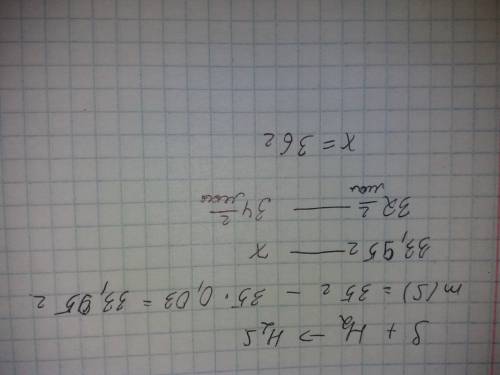 S + H₂ → H₂S
m(S) = 35 г - 35 · 0,03 = 33,95 г
33,95 г —— x
32 г/моль —— 34 г/моль
x = 36 г